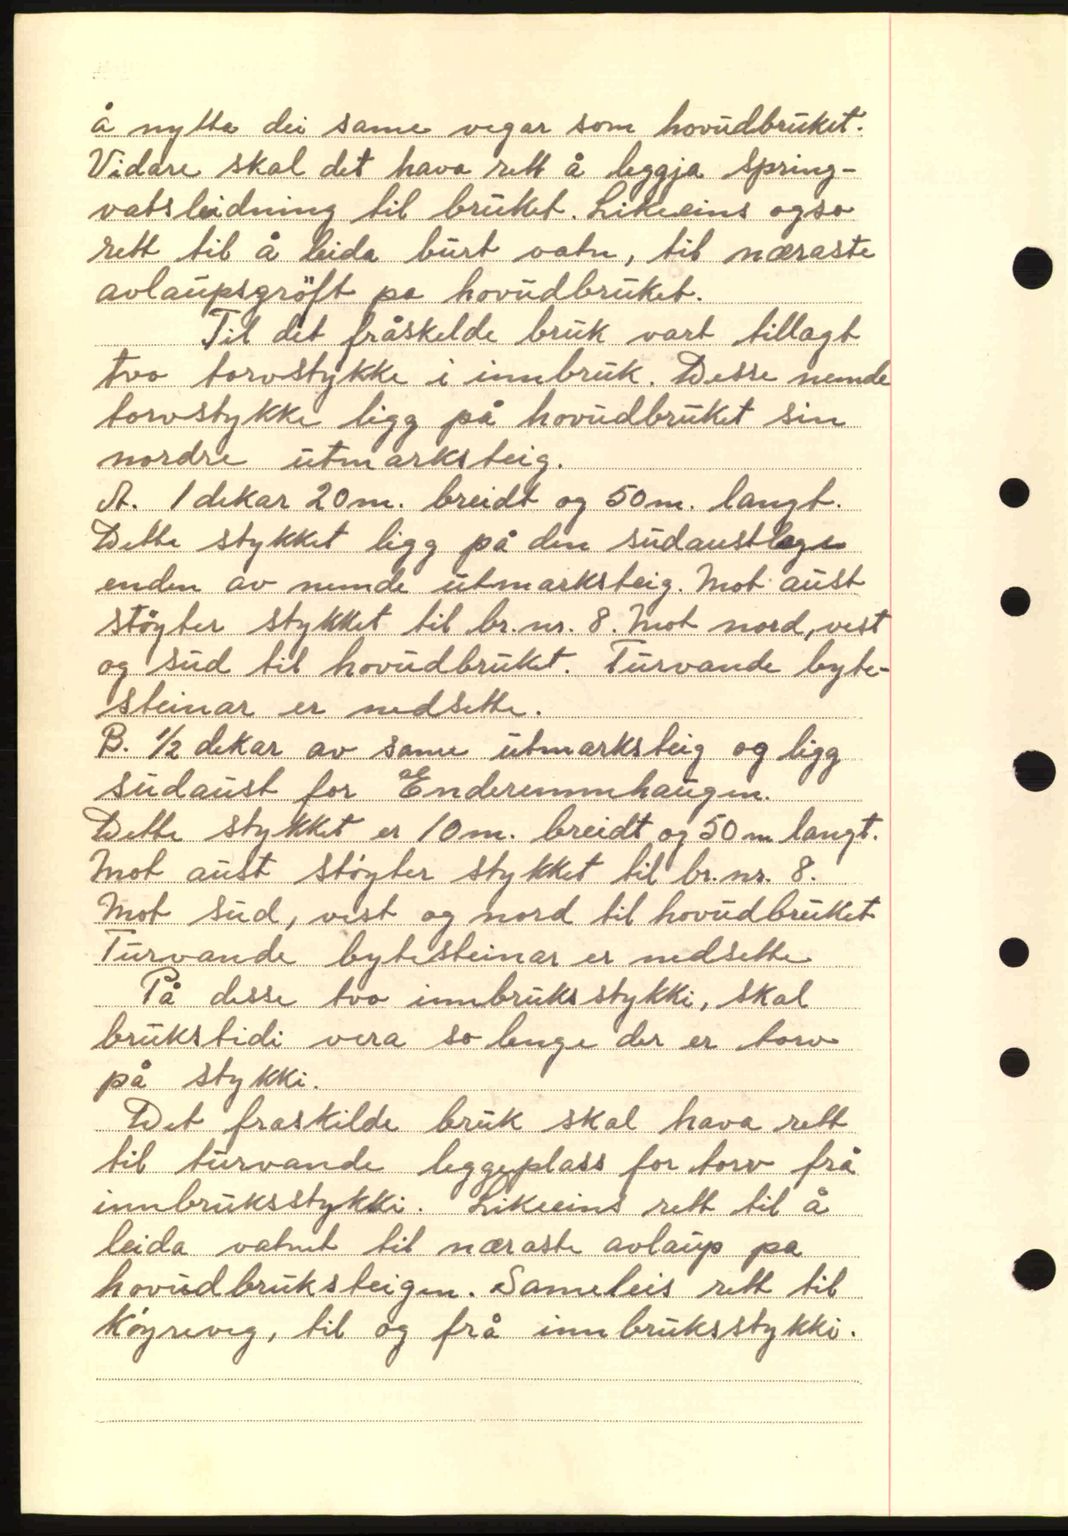 å nytta dei same vegar som hovudbruket.
Vidare skal det hava rett å leggja spring-
vatsleidning til bruket. Likeeins ogso
rett til å leida burt vatn, til næraste
avlaupsgröft pa hovudbruket.
Til det fråskelde bruk vart tillagt
tvo torvstykke i innbruk. Desse nemde
torvstykke ligg på hovudbruket sin
nordre utmarksteig.
A. 1 dekar 20 m. breidt og 50 m. langt.
Dette stykket ligg på den sudaustlege
enden av nemde utmarksteig. Mot aust
støyter stykket til br. nr. 8. Mot nord, vest
og sud til hovudbruket. Turvande byte-
steinar er nedsette.
B. 1/2 dekar av same utmarksteig og ligg
sudaust for
Dette stykket er 10 m. breidt og 50 m langt.
Mot aust støyter stykket til br. nr. 8.
Mot sud, vest og nord til hovudbruket
Turvande bytesteinar er nedsette
På desse tvo innbruksstykki, skal
brukstidi vera so lenge der er torv
på stykki.
Det fraskilde bruk skal hava rett
til turvande leggeplass for torv frå
innbruksstykki. Likeeins rett til å
leida vatnet til næraste avlaup pa
hovudbruksteigen. Sameleis rett til
køyreveg, til og frå innbruksstykki.